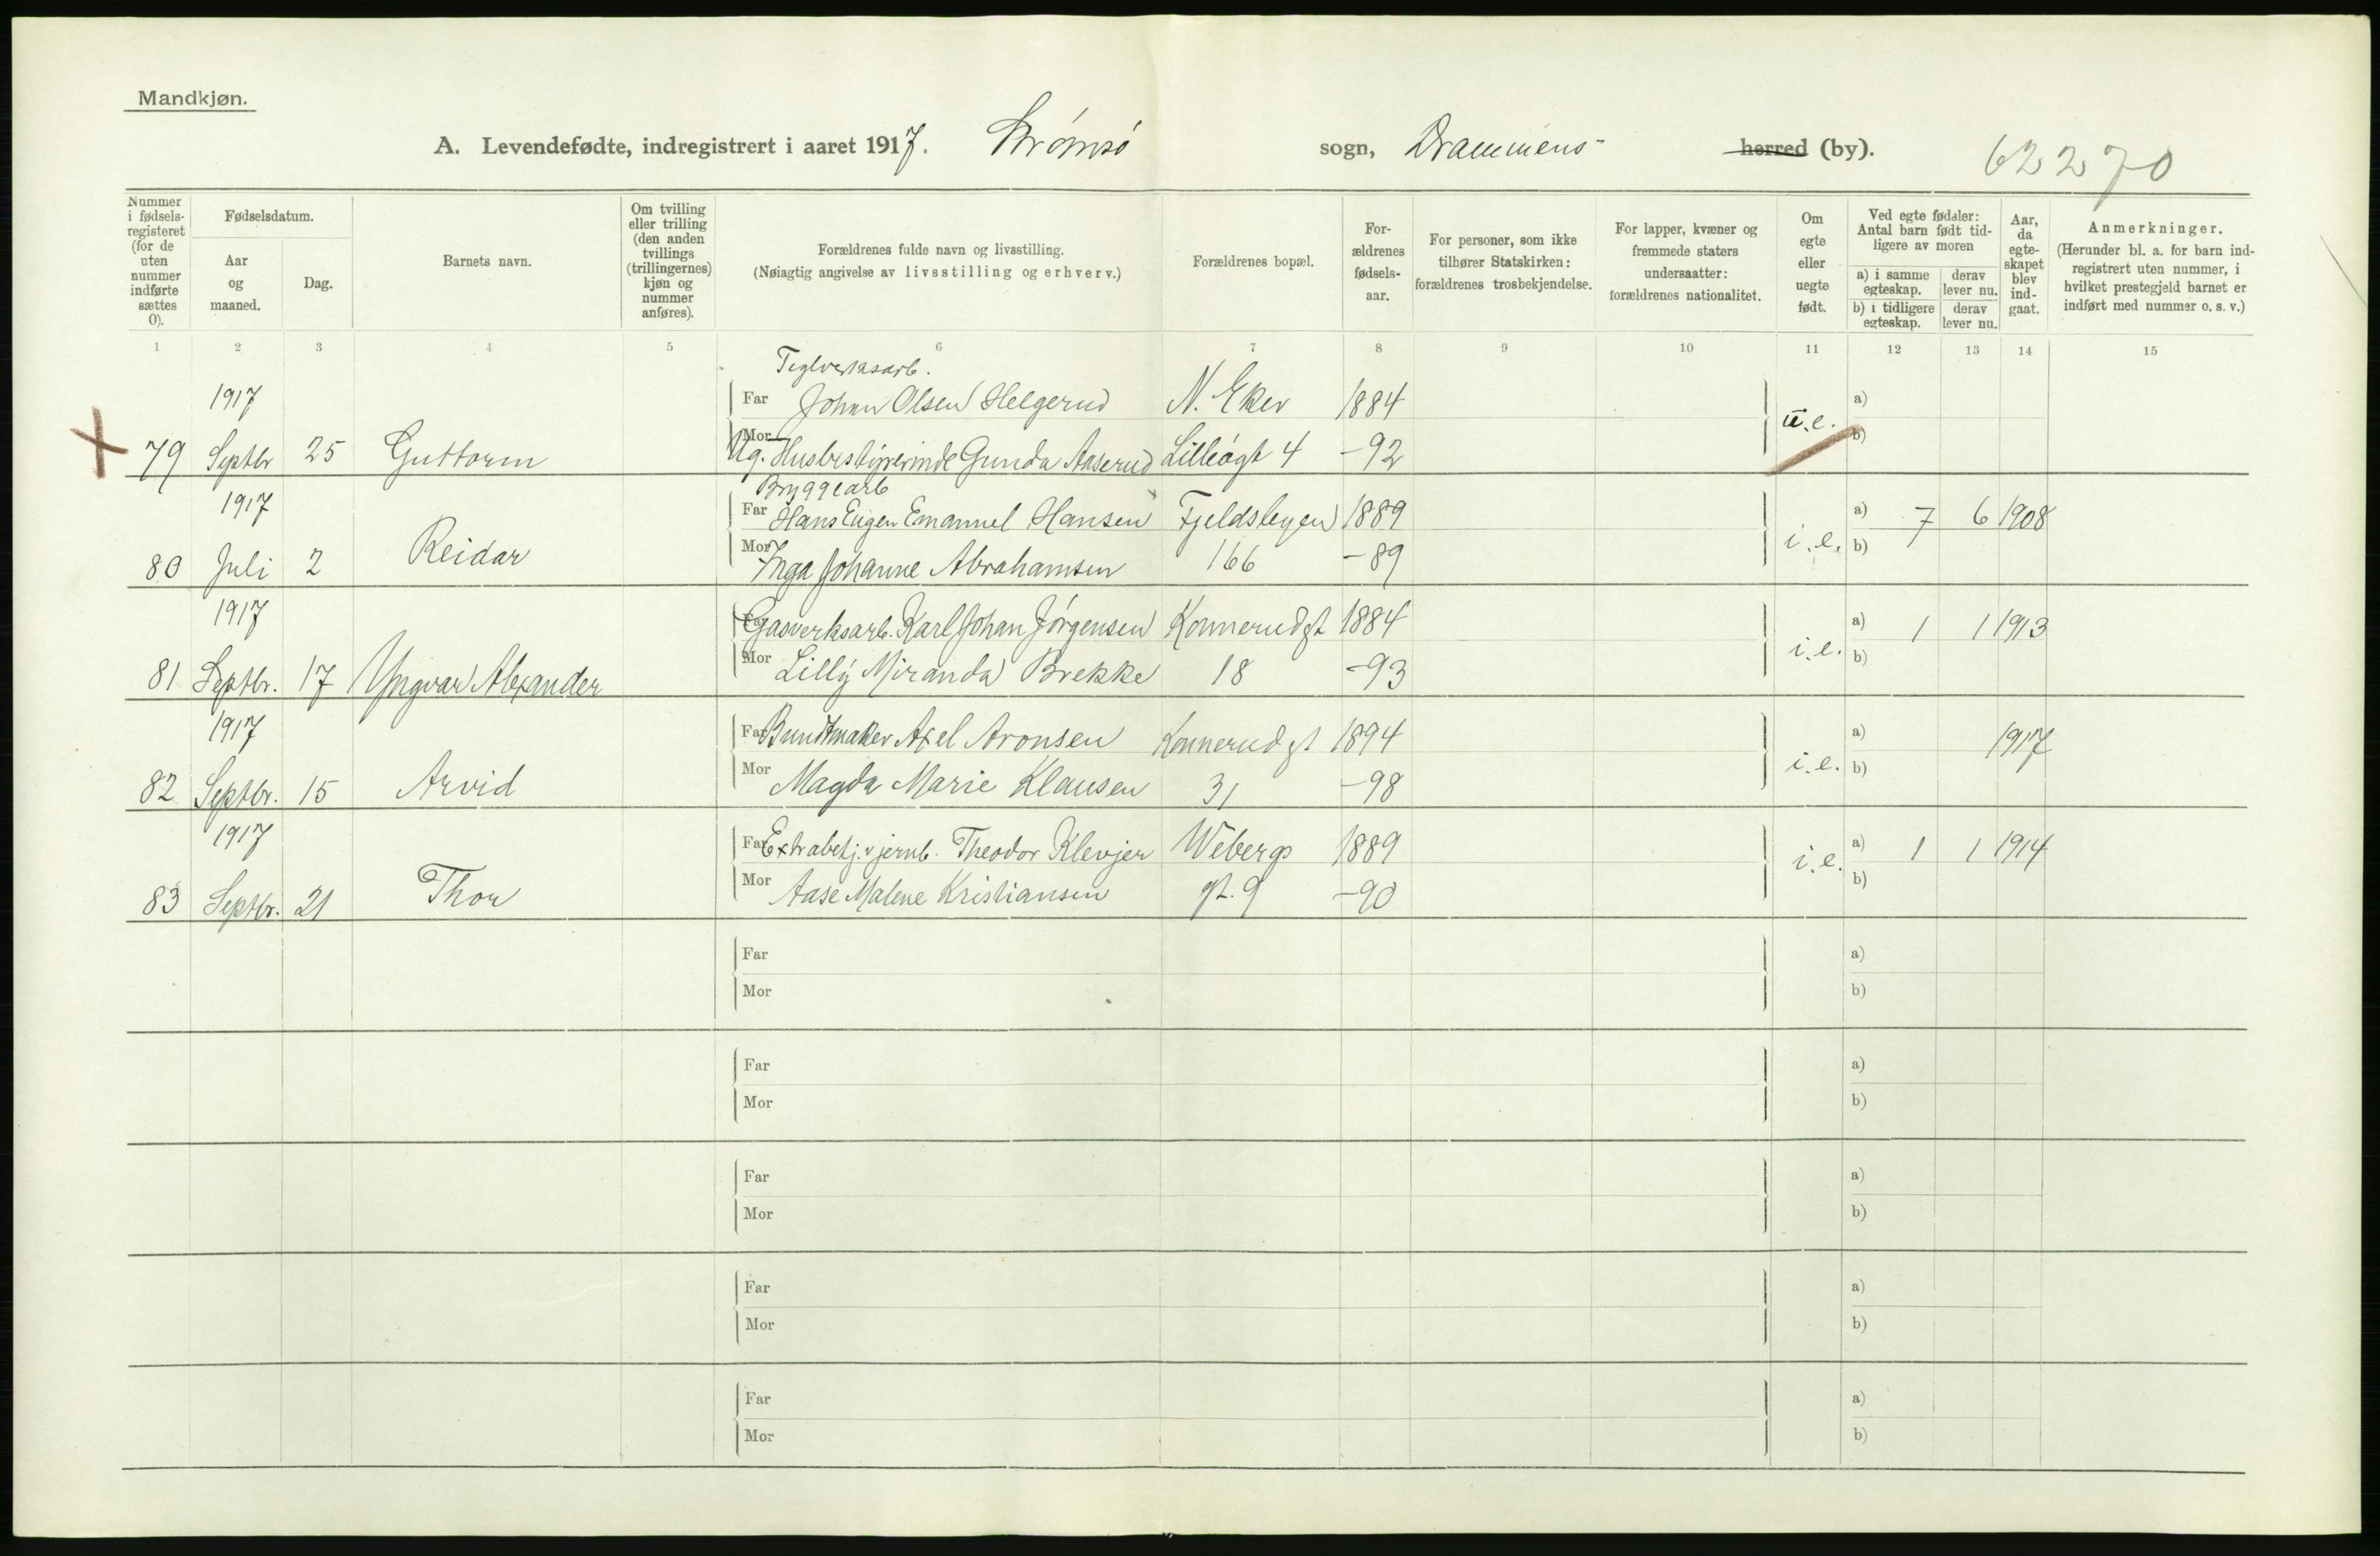 Mandkjøn.
A. Levendefødte, indregistrert i aaret 1917. Strømsø sogn, Drammens herred (by). 62270
Nummer i fødsels-registeret (for de uten nummer indførte sættes 0).
Fødselsdatum.
Aar og maaned.
Dag.
Barnets navn.
Om tvilling eller trilling (den anden tvillings (trillingernes) kjøn og nummer anføres).
Forældrenes fulde navn og livsstilling.
(Nøiagtig angivelse av livsstilling og erhverv.)
Forældrenes bopæl.
For-ældrenes fødsels-aar.
For personer, som ikke tilhører Statskirken: forældrenes trosbekjendelse.
For lapper, kvæner og fremmede staters undersaatter: forældrenes nationalitet.
Om egte eller uegte født.
Ved egte fødsler: Antal barn født tid-ligere av moren
a) i samme egteskap. derav lever nu.
b) i tidligere egteskap. derav lever nu.
Aar, da egte-skapet blev ind-gaat.
Anmerkninger.
(Herunder bl. a. for barn ind-registrert uten nummer, i hvilket prestegjeld barnet er indført med nummer o. s. v.)
1 2 3 4 5 6 7 8 9 10 11 12 13 14 15
Teglverksarb.
1917 Far Johan Olsen Helgerud N. Eker 1884 u.e. a)
79 Septbr 25 Guttorm Mor Ug. Husbestyrerinde Gunda Aaserud Lilleøgt 4 -92 b)
Bryggearb
1917 Far Hans Eugen Emanuel Hansen Fjeldsbyen 1889 a) 7 6 1908
80 Juli 2 Reidar Mor Inga Johanne Abrahamsen 166 -89 i.e. b)
1917 Far Gasverksarb. Karl Johan Jørgensen Konnerudgt 1884 a) 1 1 1913
81 Septbr. 17 Yngvar Alexander Mor Lilly Miranda Brekke 18 -93 i.e. b)
1917 Far Bundtmaker Axel Aronsen Konnerudgt 1894 a) 1917
82 Septbr. 15 Arvid Mor Magda Marie Klausen 31 -98 i.e. b)
1917 Far Extrabetj. v jernb. Theodor Klevjer Webergs 1889 i.e. a) 1 1 1914
83 Septbr. 21 Thor Mor Aase Malene Kristiansen gt. 9 -90 b)
Far a)
Mor b)
Far a)
Mor b)
Far a)
Mor b)
Far a)
Mor b)
Far a)
Mor b)